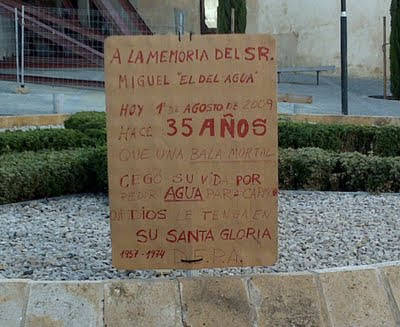 A LA MEMORIA DEL SR.
MIGUEL "EL DEL AGUA"
HOY 1º AGOSTO DE 2009
HACE 35 AÑOS
QUE UNA BALA MORTAL
CEGÓ SU VIDA POR
PEDIR AGUA PARA
QUE DIOS LE TENGA EN
SU SANTA GLORIA
1957-1974 D.E.P.A.